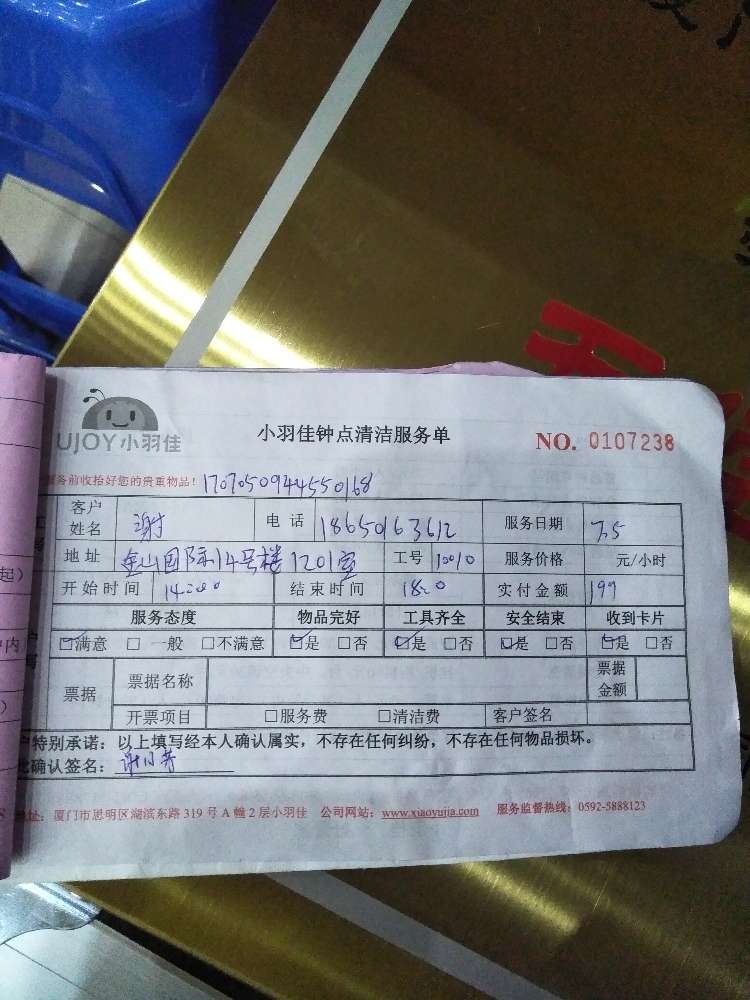 UJOY小羽佳
小羽佳钟点清洁服务单
NO. 0107238
务前收拾好您的贵重物品! 1707050944550168
客户姓名 谢 电话 18650163612 服务日期 7.5
地址 金山国际14号楼1201室 工号 10010 服务价格 元/小时
开始时间 14:00 结束时间 18:0 实付金额 199
服务态度 物品完好 工具齐全 安全结束 收到卡片
☑满意 □一般 □不满意 ☑是 □否 ☑是 □否 ☑是 □否 ☑是 □否
票据 票据名称 票据金额
开票项目 □服务费 □清洁费 客户签名
特别承诺：以上填写经本人确认属实，不存在任何纠纷，不存在任何物品损坏。
确认签名：谢小芳
地址：厦门市思明区湖滨东路 319 号 A 幢 2 层小羽佳 公司网站：www.xiaoyujia.com 服务监督热线：0592-5888123
起）
户内